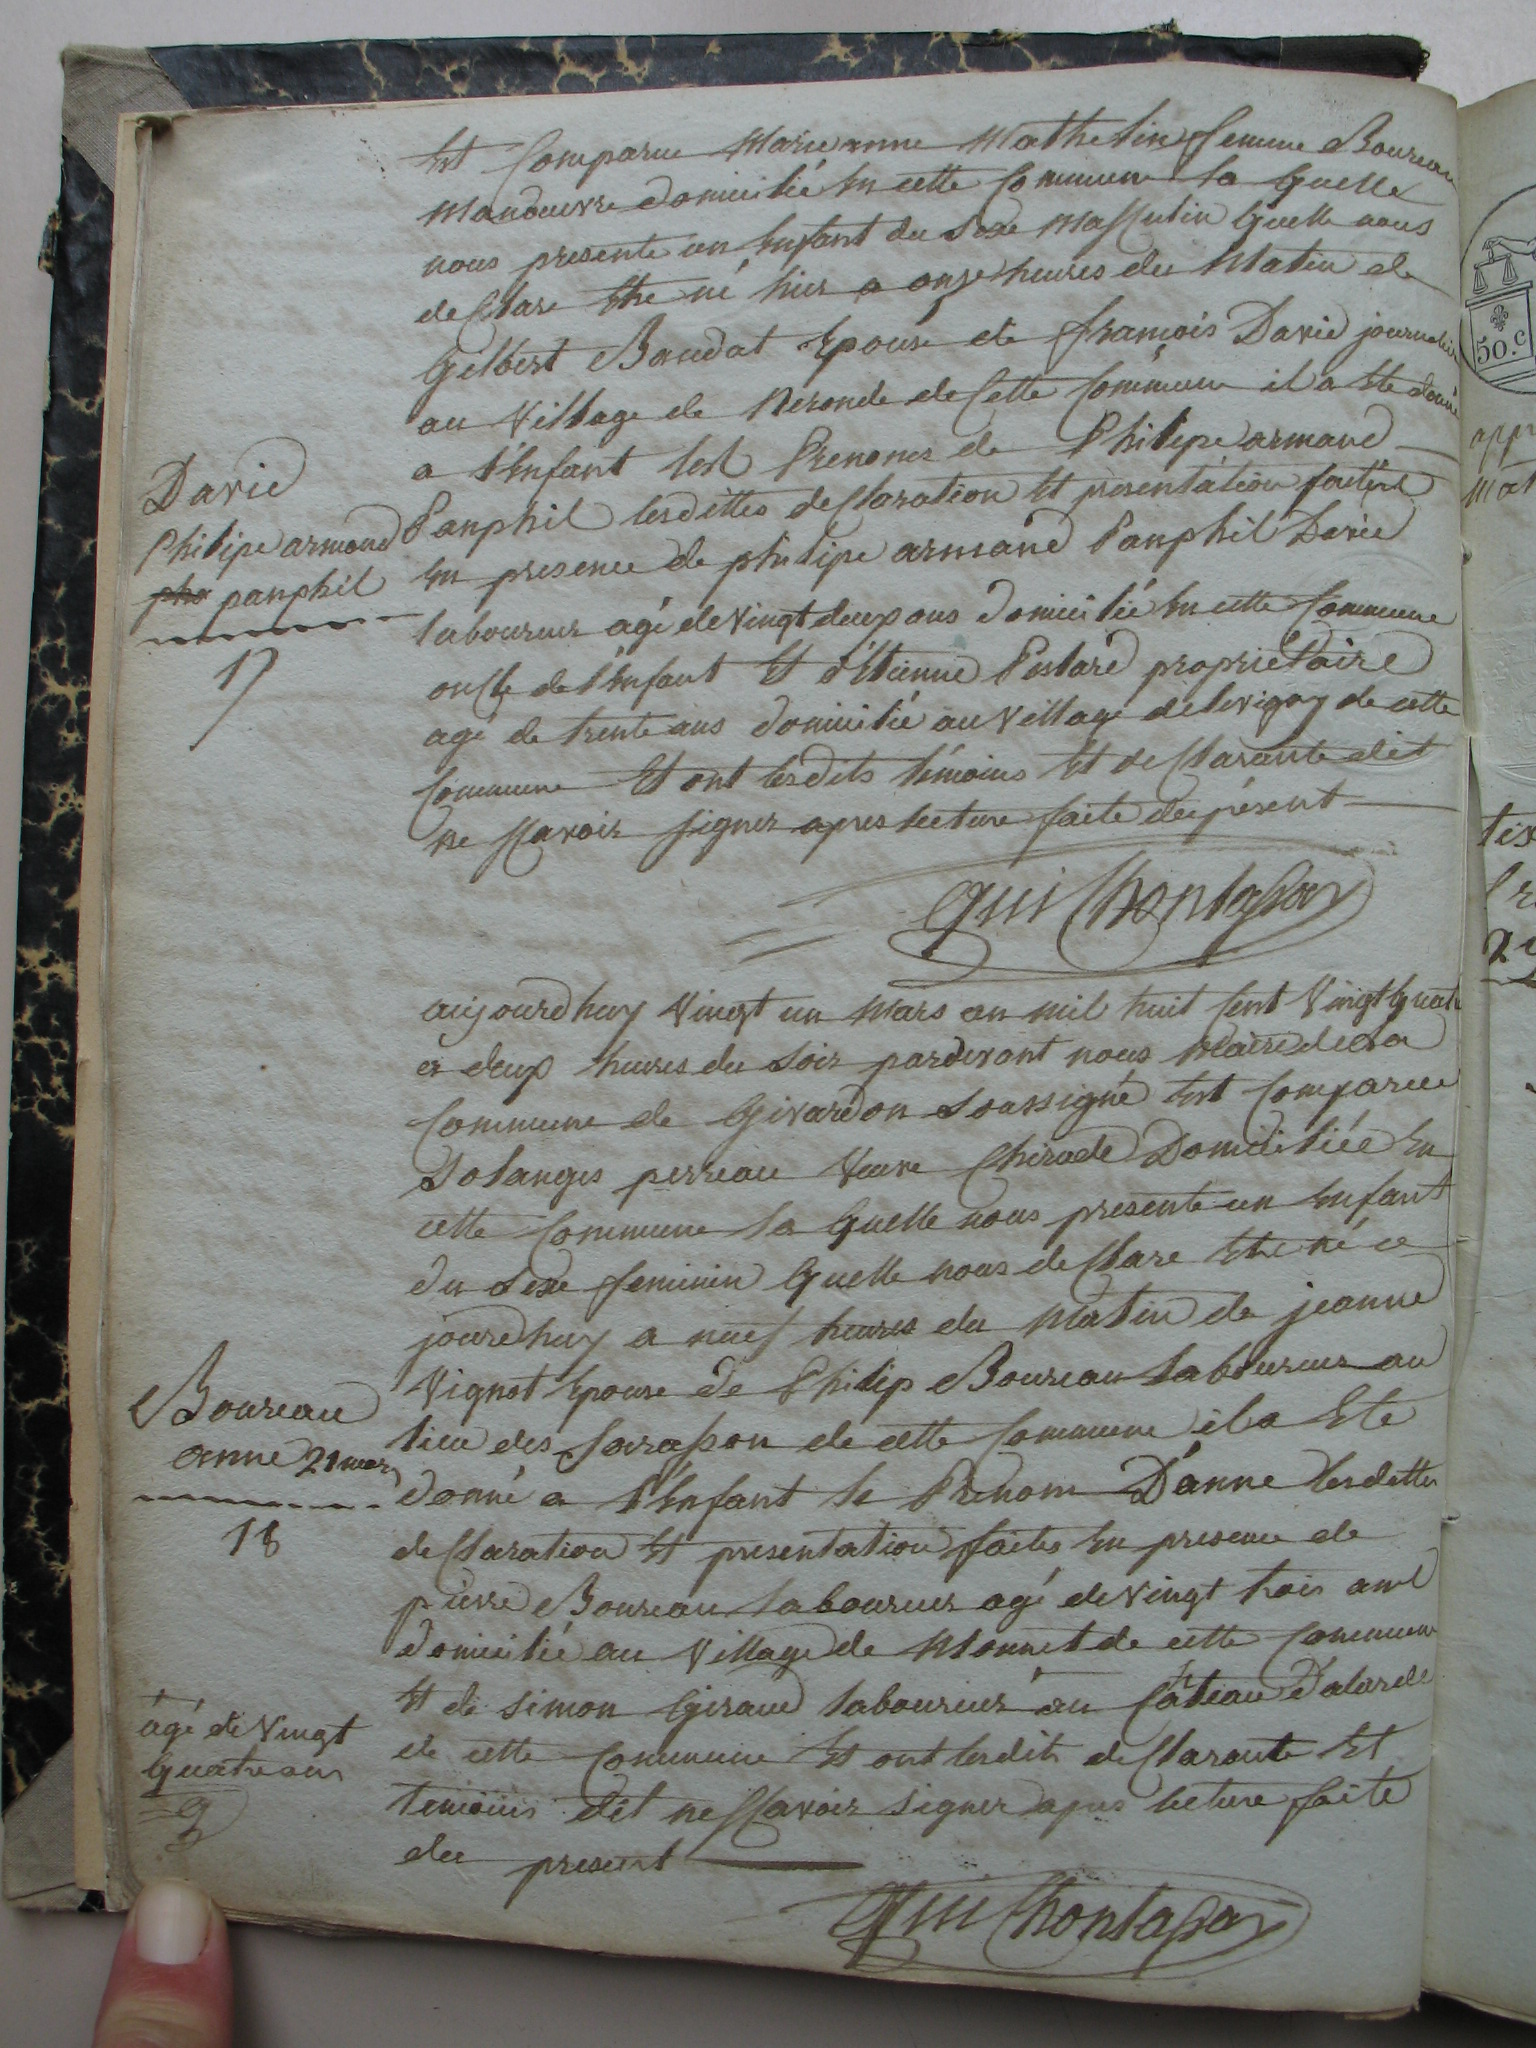 Est Comparue Marie anne Mathelin femme Boureau
Manoeuvre domicilié En cette Commune la quelle
nous presente un Enfant du Sexe Masculin quelle nous
declare Etre né hier a onze heures du Matin de
Gilbert Baudat Epouse de francois Darie journalier
au Village de Neronde de Cette Commune il a Ete donné
a l'Enfant les Prenoms de Philipe armand
Panphil lesdittes declaration Et presentation faittes
En presence de philipe armand Panphil Darie
laboureur agé de vingt deux ans domicilié En cette Commune
oncle de l'Enfant Et d'Etienne Postard proprietaire
agé de trente ans domicilié au Village de de cette
Commune Et ont lesdits témoins Et declarante dit
ne scavoir signer apres lecture faite du présent
Darie
Philipe armand
pha panphil
17
aujourdhuy Vingt un Mars an mil huit Cent Vingt quatre
a deux heures du Soir pardevant nous Maire de la
Commune de Givardon Soussigné Est Comparue
Solanges perreau Veuve Chirade Domiciliée En
cette Commune la quelle nous presente un Enfant
du Sexe feminin quelle nous declare Etre né ce
jourdhuy a neuf heures du Matin de jeanne
Vignot Epouse de Philip Boureau laboureur au
lieu des de cette Commune il a Ete
donné a l'Enfant le Prénom D'anne lesdettes
declaration Et presentation faites En presence de
pierre Boureau laboureur agé de vingt trois ans
domicilié au Village de Monnet de cette Commune
Et de Simon Giraud laboureur au Câteau D'alarde
de cette Commune Et ont lesdits declarante Et
temoins dit ne scavoir signer apres lecture faite
du present
Boureau
anne 21 mars
18
âgé de Vingt
quatre ans
50.c